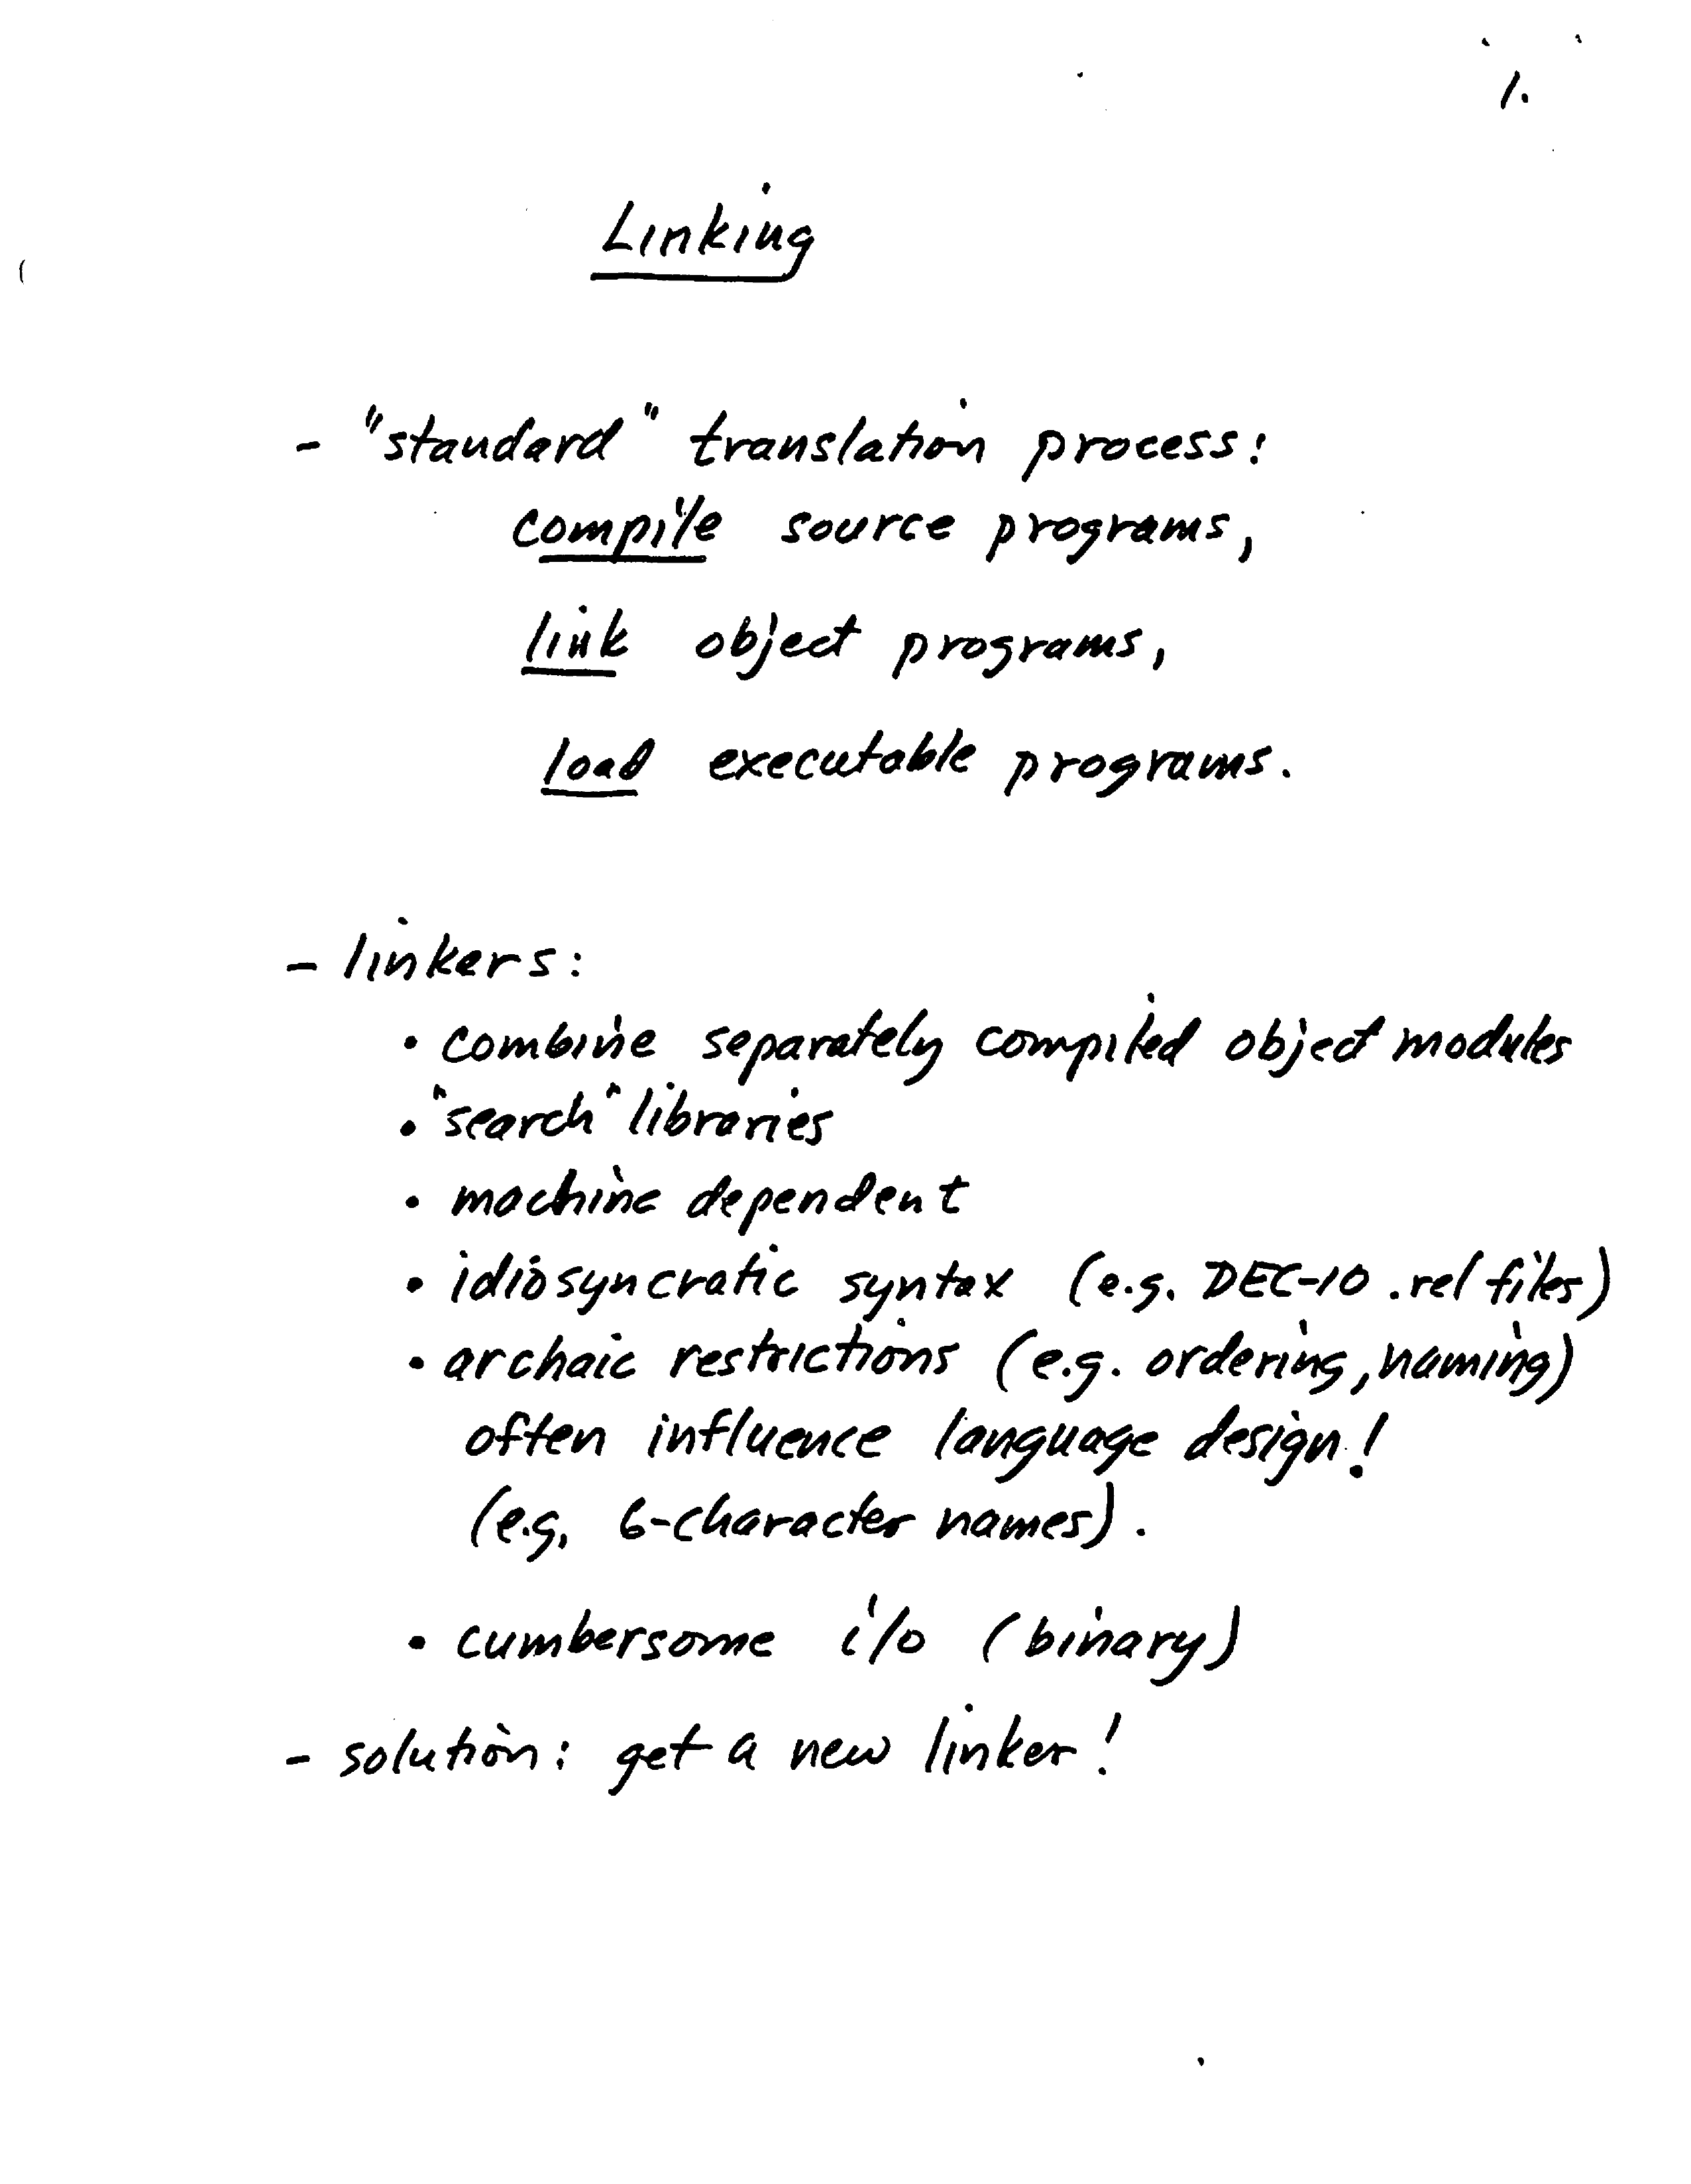 1.
Linking
- "standard" translation process:
compile source programs,
link object programs,
load executable programs.
- linkers:
• combine separately compiled object modules
• "search" libraries
• machine dependent
• idiosyncratic syntax (e.g. DEC-10 .rel files)
• archaic restrictions (e.g. ordering, naming)
often influence language design!
(e.g. 6-character names).
• cumbersome i/o (binary)
- solution: get a new linker!